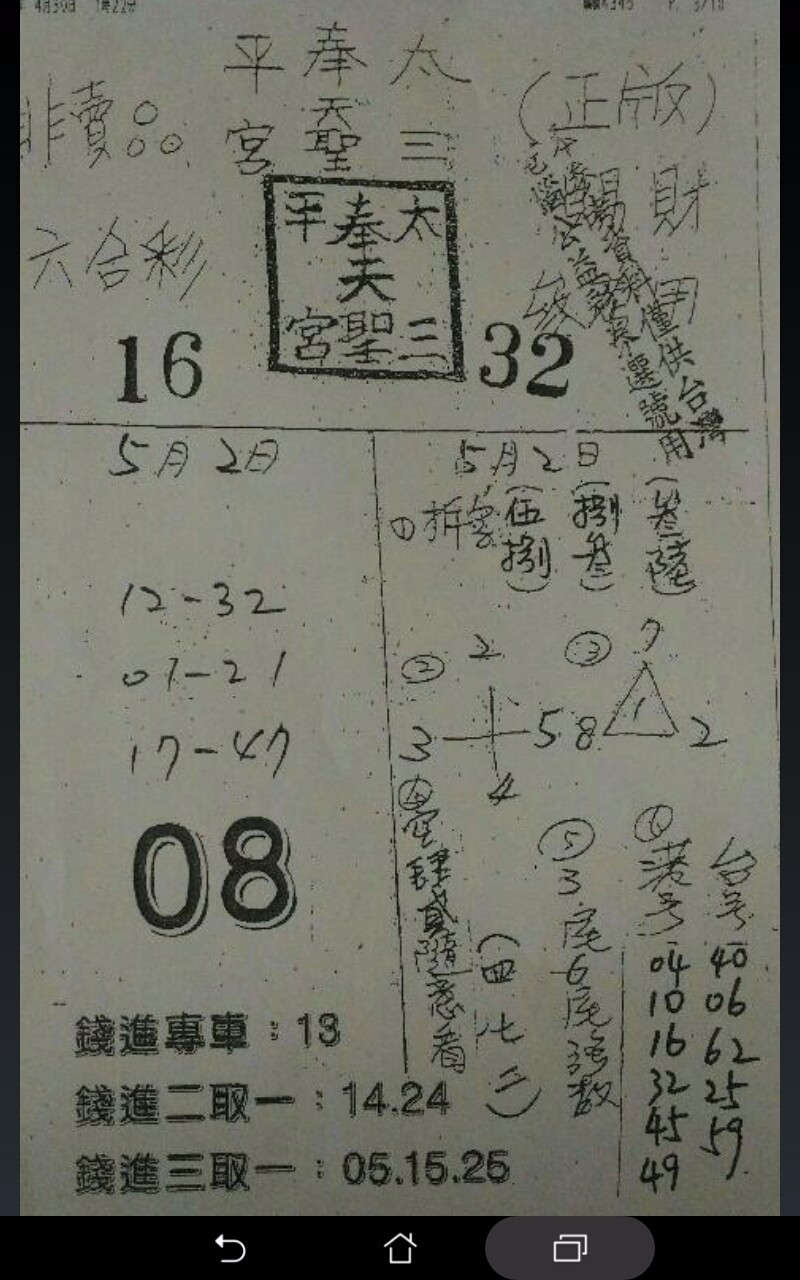 4月30日 1時22分
平 奉 太
天
宮 聖 三
(正版)
非賣品
平 奉 太
天
宮 聖 三
財
六合彩
16
32
資料僅供台灣
選號用
5月2日
12-32
07-21
17-47
08
錢進專車：13
錢進二取一：14.24
錢進三取一：05.15.25
5月2日
①拆字
(伍捌)
(捌叁)
(叁陸)
②
2
3 5
4
③
7
1
8 2
④
肆貳隨意看
(四七二)
⑤
3尾6尾強數
⑥
港号 台号
04 40
10 06
16 62
32 25
45 59
49